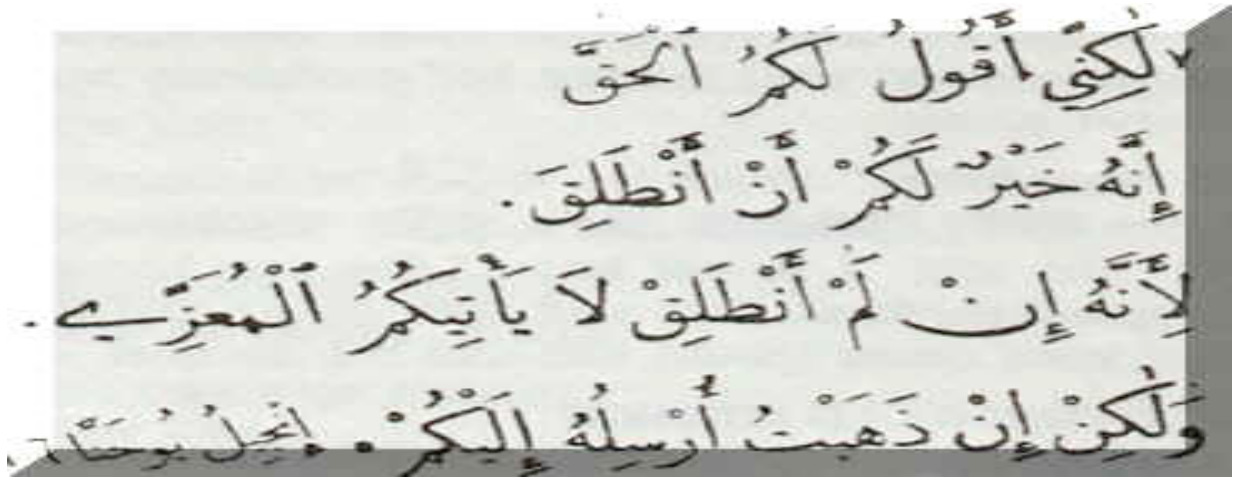 ٧ لٰكِنِّي أَقُولُ لَكُمُ ٱلْحَقَّ
إِنَّهُ خَيْرٌ لَكُمْ أَنْ أَنْطَلِقَ .
لِأَنَّهُ إِنْ لَمْ أَنْطَلِقْ لَا يَأْتِيكُمُ ٱلْمُعَزِّي .
وَلٰكِنْ إِنْ ذَهَبْتُ أُرْسِلُهُ إِلَيْكُمْ . إِنْجِيلُ يُوحَنَّا